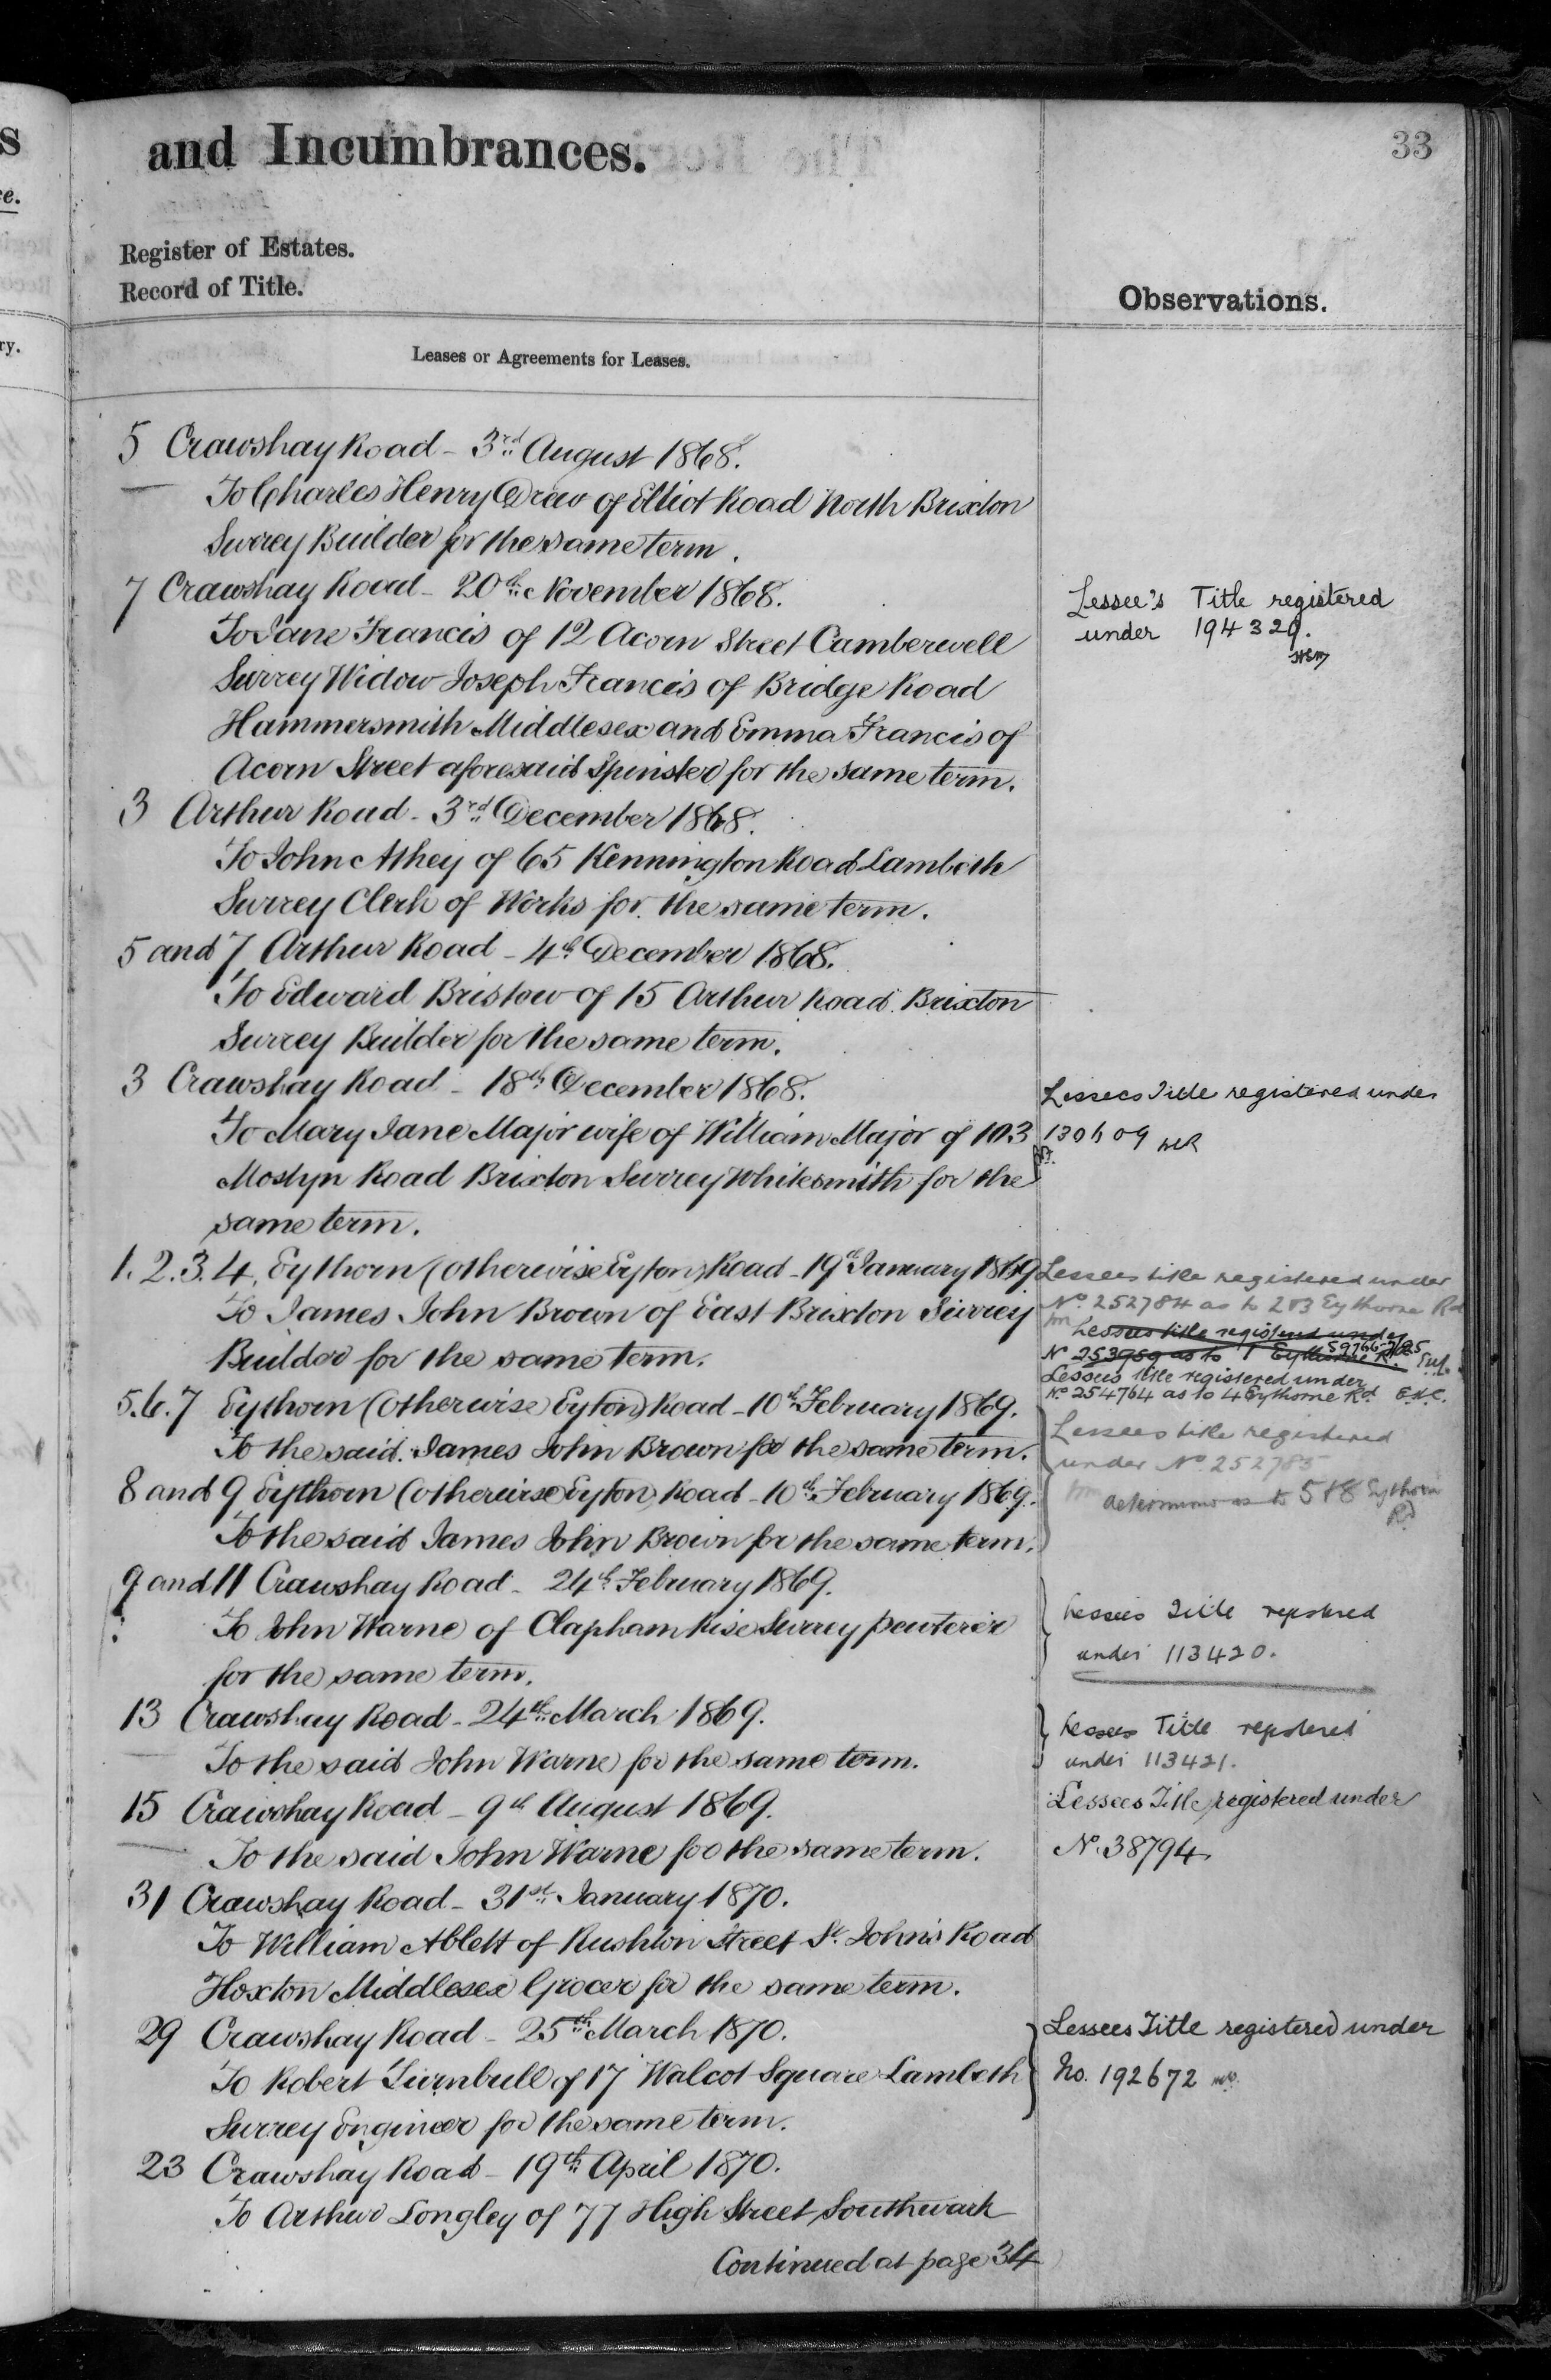 33
and Incumbrances.
Register of Estates.
Record of Title.
Observations.
Leases or Agreements for Leases.
5 Crawshay Road - 3rd August 1868.
To Charles Henry Drew of Elliot Road North Brixton
Surrey Builder for the same term.
7 Crawshay Road - 20th November 1868.
To Jane Francis of 12 Acorn Street Camberwell
Surrey Widow Joseph Francis of Bridge Road
Hammersmith Middlesex and Emma Francis of
Acorn Street aforesaid Spinster for the same term.
Lessee's Title registered
under 194329.
3 Arthur Road - 3rd December 1868.
To John Athey of 65 Kennington Road Lambeth
Surrey Clerk of Works for the same term.
5 and 7 Arthur Road - 4th December 1868.
To Edward Bristow of 15 Arthur Road Brixton
Surrey Builder for the same term.
3 Crawshay Road - 18th December 1868.
To Mary Jane Major wife of William Major of 103
Mostyn Road Brixton Surrey Whitesmith for the
same term.
Lessees Title registered under
1.2.3.4. Eythorn (otherwise Eyton) Road - 19th January 1869
To James John Brown of East Brixton Surrey
Builder for the same term.
Lessees title registered under
No. 252784 as to 2&3 Eythorne Rd
Lessees title registered under
No 253959 as to 1 Eythorne Rd.
Lessees title registered under
No 254764 as to 4 Eythorne Rd
5.6.7 Eythorn (otherwise) Eyton) Road - 10th February 1869.
To the said James John Brown for the same term.
8 and 9 Eythorn (otherwise Eyton) Road - 10th February 1869.
To the said James John Brown for the same term.
Lessees title registered
under No. 252785
as to 5&8 Eythorn
Rd
9 and 11 Crawshay Road - 24th February 1869.
To John Warne of Clapham Rise Surrey pewterer
for the same term.
Lessees Title registered
under 113420.
13 Crawshay Road - 24th March 1869.
To the said John Warne for the same term.
Lessees Title registered
under 113421.
15 Crawshay Road - 9th August 1869.
To the said John Warne for the same term.
Lessees Title registered under
No. 38794
31 Crawshay Road - 31st January 1870.
To William Ablett of Rushton Street St. John's Road
Hoxton Middlesex Grocer for the same term.
29 Crawshay Road - 25th March 1870.
To Robert Turnbull of 17 Walcot Square Lambeth
Surrey Engineer for the same term.
Lessees Title registered under
No. 192672
23 Crawshay Road - 19th April 1870.
To Arthur Longley of 77 High Street Southwark
Continued at page 34